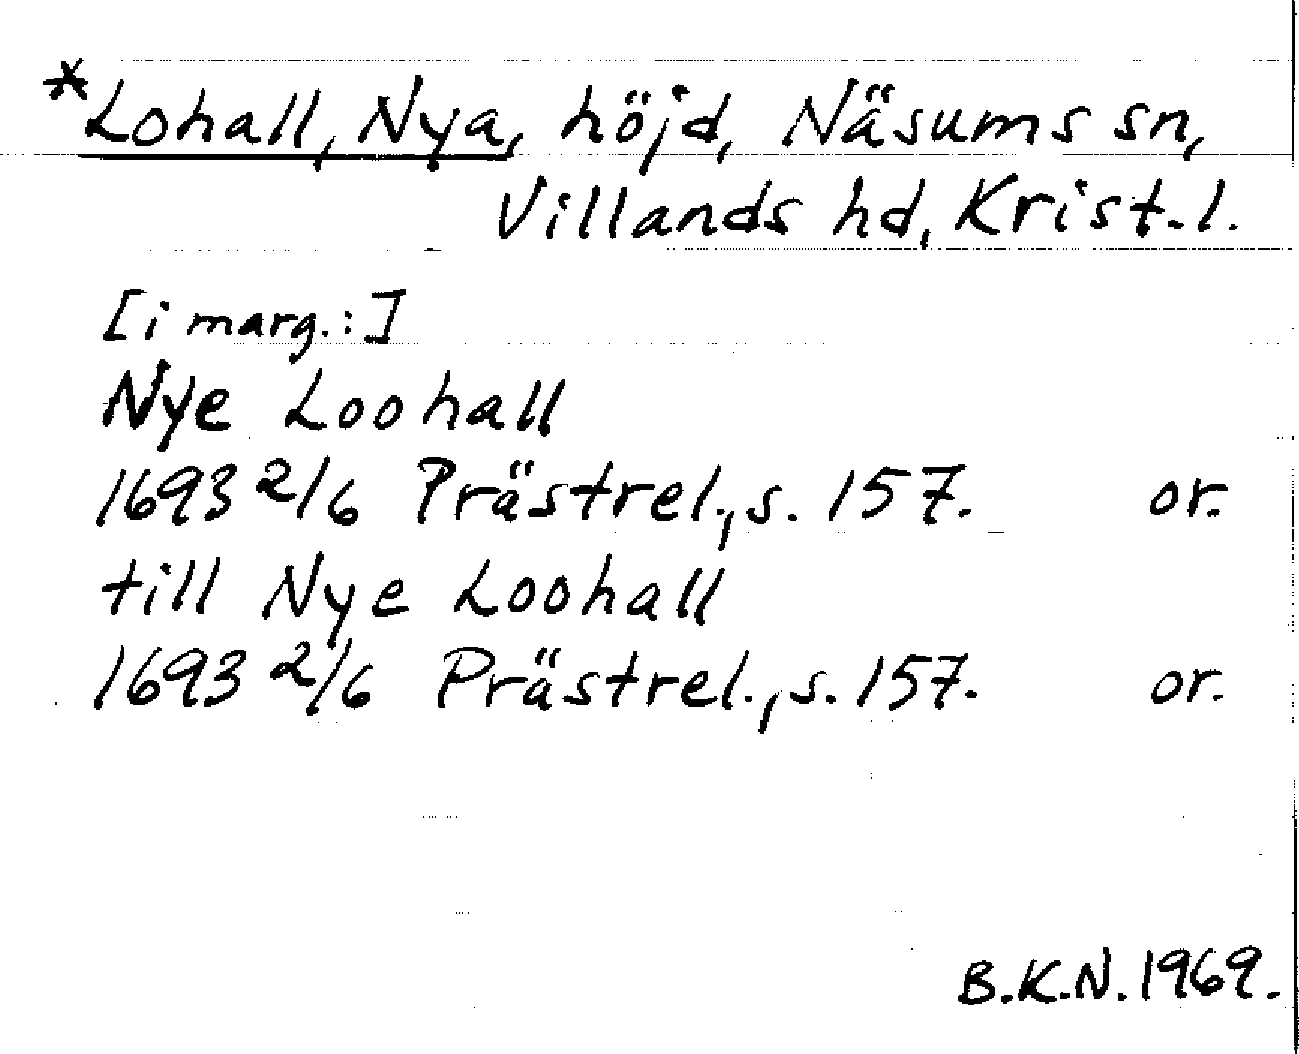 *Lohall, Nya, höjd, Näsums sn,
Villands hd, Krist. l.
[i marg.:]
Nye Loohall
1693 2/6 Prästrel., s. 157. or.
till Nye Loohall
1693 2/6 Prästrel., s. 157. or.
B.K.N. 1969.